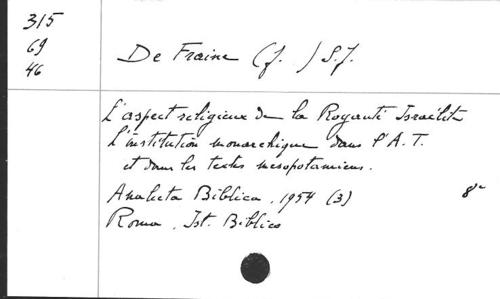 315
69
46
De Fraine (J. ) S.J.
L'aspect religieux de la Royauté Israélite
L'institution monarchique dans l'A.T.
et dans les textes mésopotamiens.
Analecta Biblica, 1954 (3) 8°
Roma, Ist. Biblico